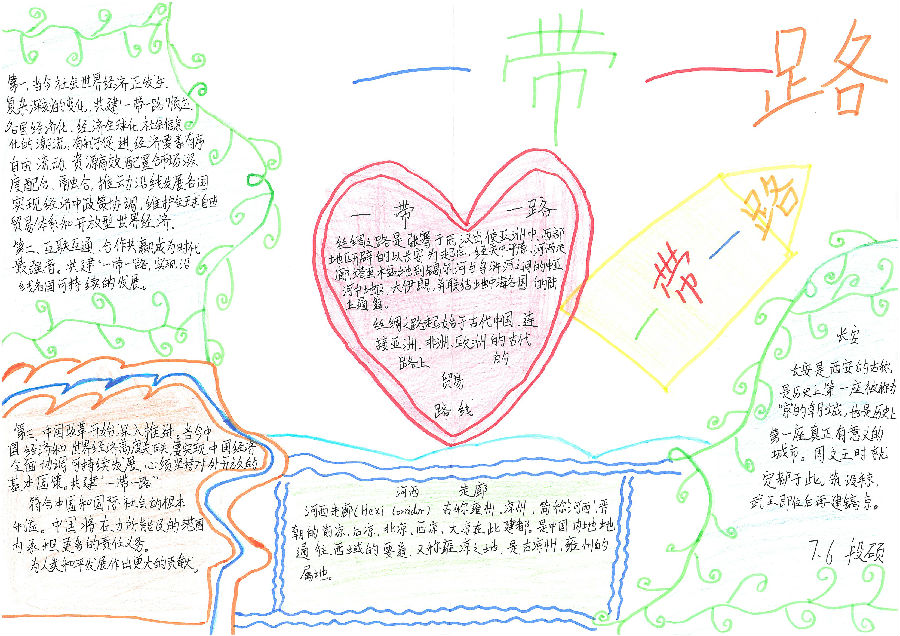 一带一路
第一,当今社会世界经济正发生
复杂深刻的变化,共建"一带一路"顺应
经济化,经济全球化,社会信息
化的潮流,有利于促进经济要素有序
自由流动,资源高效配置
度融合,推动沿线发展各国
实现经济政策协调,维护全球自由
贸易体系和开放型世界经济.
第二,互联互通,合作共赢成为时代
最强音.共建"一带一路,实现沿
线各国可持续的发展。
一带一路
丝绸之路是张骞于西汉出使亚洲中,西部
地区开辟的以长安为起点,经关中平原、河西走
廊、塔里木盆地到锡尔河与乌浒河之间的中亚
河中地区、大伊朗,并联结地中海各国的陆
上通道。
丝绸之路起始于古代中国,连
接亚洲、非洲、欧洲的古代
路上 的
贸易
路线
一带一路
长安
长安是西安的古称,
是历史上第一座被称为
"京"的都城,也是历史上
第一座真正有意义的
城市。周文王时就
定都于此,筑设
武王即位后再建镐京。
第三,中国改革开放深入推进,当今中
国经济和世界经济高度关联要实现中国经济
全面协调可持续发展,必须坚持对外开放的
基本国策,共建"一带一路"
符合中国和国际社会的根本
利益。中国将在力所能及的范围
内承担更多的责任义务。
为人类和平发展作出更大的贡献。
河西 走廊
河西走廊(Hexi Corridor)古称雍州、凉州,简称"河西",晋
朝的前凉,后凉,北凉,西凉,大凉在此建都,是中国内地
通往西域的要道,又称雍凉之地,是古凉州,雍州的
属地。
7.6 段硕